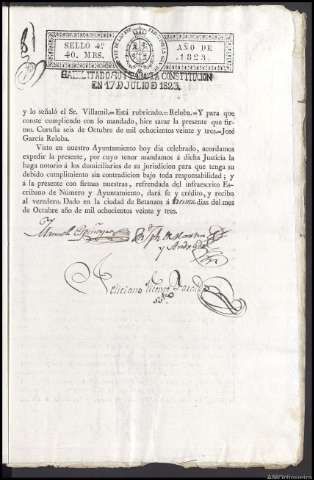 SELLO 4º
40. MRS.
AÑO DE
1823.
HABILITADO JURADA LA CONSTITUCION
EN 17 D JULIO D 1823.
y lo señaló el Sr. Villamil.= Está rubricado.= Reloba.= Y para que
conste cumpliendo con lo mandado, hice sacar la presente que fir-
mo. Coruña seis de Octubre de mil ochocientos veinte y tres.=José
García Reloba.
Visto en nuestro Ayuntamiento hoy dia celebrado, acordamos
expedir la presente, por cuyo tenor mandamos á dicha Justicia la
haga notorio á los domiciliarios de su jurisdicion para que tenga su
debido cumplimiento sin contradicion bajo toda responsabilidad; y
á la presente con firmas nuestras, refrendada del infrascrito Es-
cribano de Número y Ayuntamiento, dará fe y crédito, y recibo
al veredero. Dado en la ciudad de Betanzos á dias del
mes de Octubre año de mil ochocientos veinte y tres.
Manuel
Feliciano